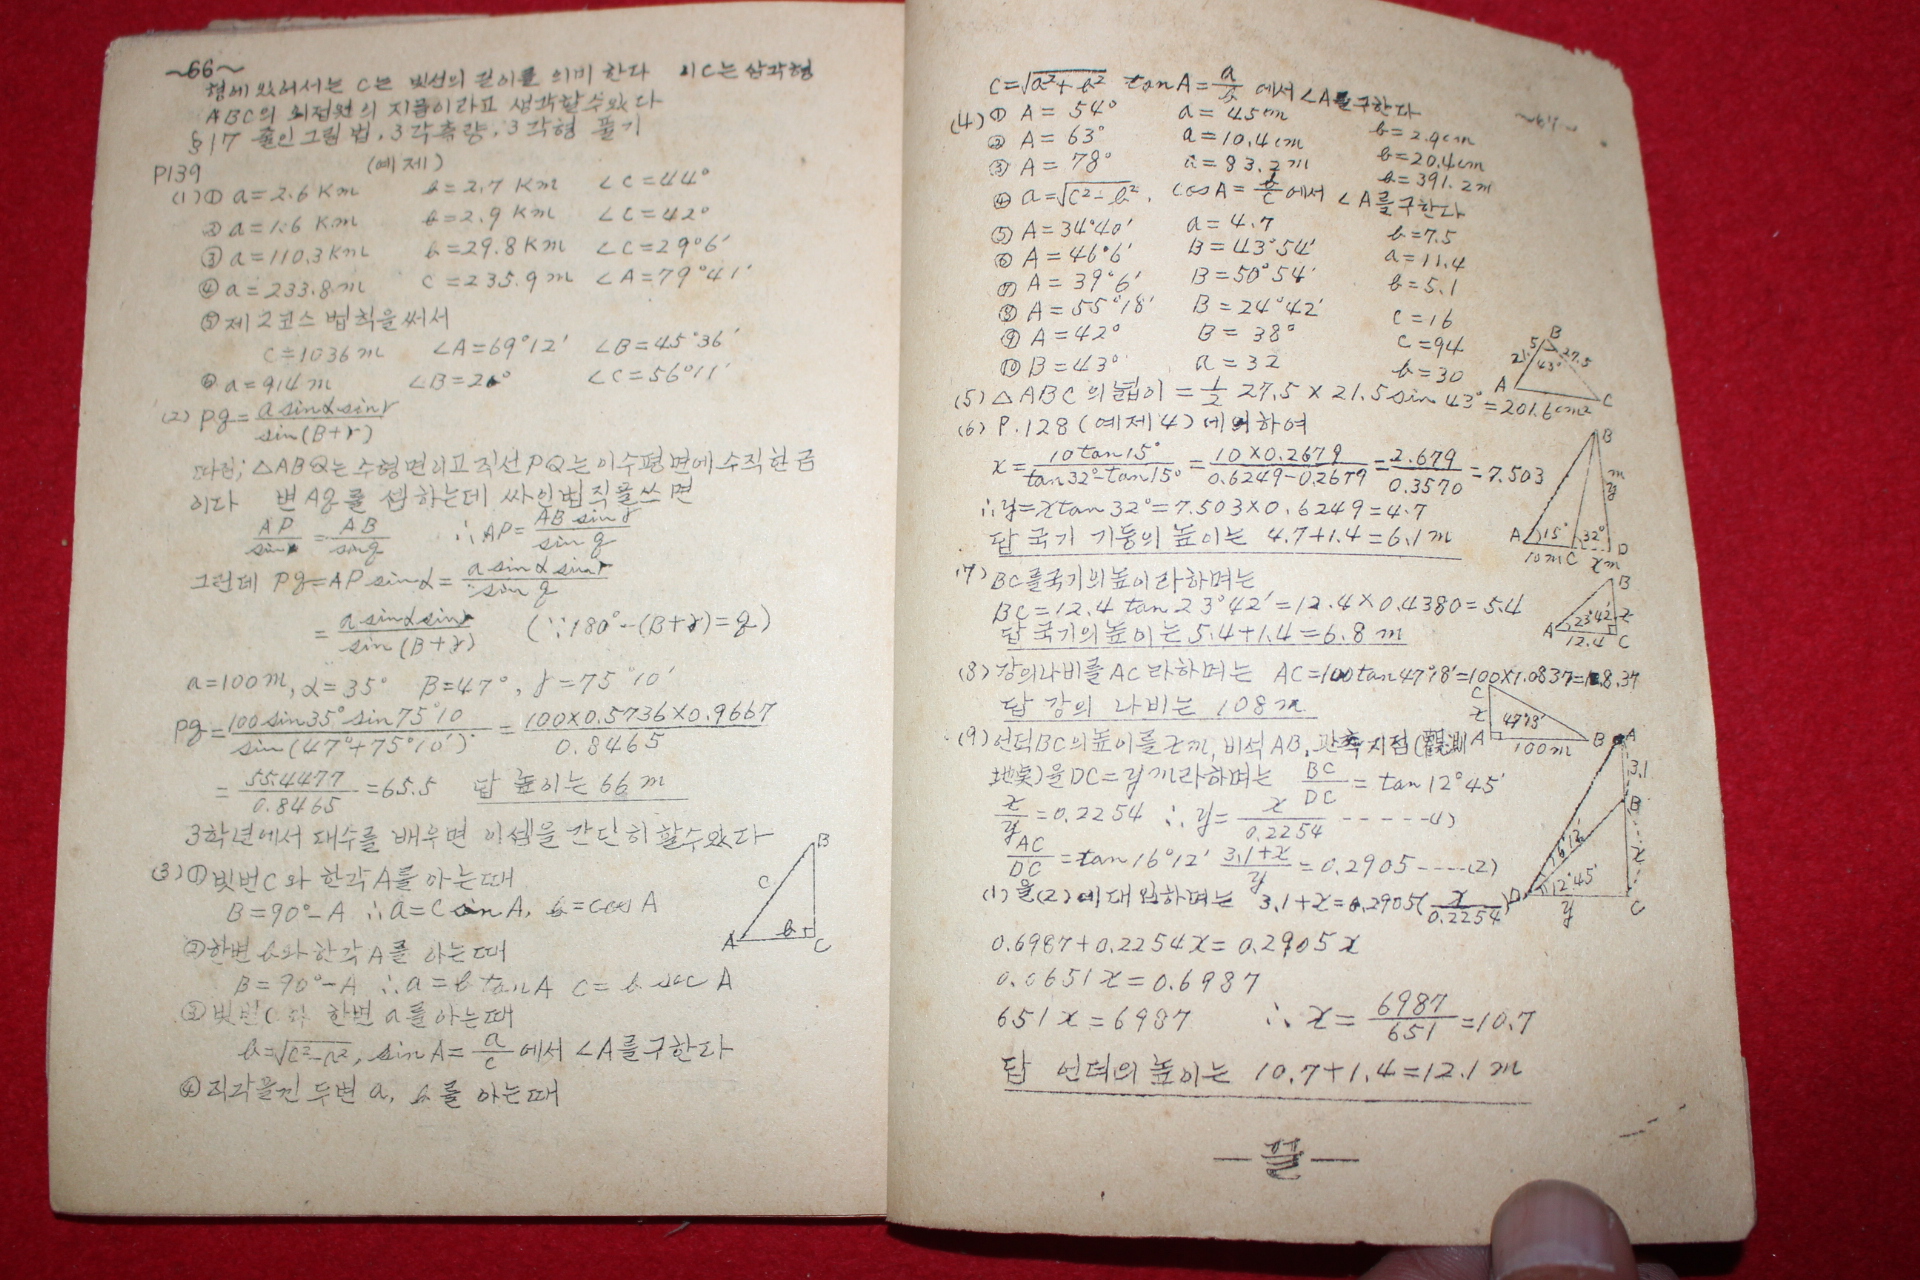 ~66~
형에 있어서는 C는 빗선의 길이를 의미 한다 이 C는 삼각형
ABC의 외접원의 지름이라고 생각할수있다
§17 줄인그림 법, 3각측량, 3각형 풀기
P139 (예제)
(1) ① a=2.6 Km b=2.7 Km ∠C=44°
② a=1.6 Km b=2.9 Km ∠C=42°
③ a=110.3Km b=29.8Km ∠C=29°6′
④ a=233.8m C=235.9m ∠A=79°41′
⑤ 제2코스 법칙을써서
C=1036m ∠A=69°12′ ∠B=45°36′
⑥ a=914m ∠B=26° ∠C=56°11′
(2) Pq= a sinα sinγ / sin(B+γ)
△ABQ는 수평면이고 직선 PQ는 이수평면에 수직한 금
이다 변 Aq를 셈하는데 싸인법칙을쓰면
AP/sinγ = AB/sin q ∴ AP= AB sin γ / sin q
그런데 Pq=AP sinα = a sinα sinγ / sin q
= a sinα sinγ / sin (B+γ) (∵180°-(B+γ)=q)
a=100m, α=35° B=47°, γ=75°10′
Pq= 100 sin35° sin75°10 / sin(47°+75°10′) = 100×0.5736×0.9667 / 0.8465
= 55.4477 / 0.8465 =65.5 답 높이는 66m
3학년에서 대수를 배우면 이셈을 간단히 할수있다
(3) ① 빗변C와 한각A를 아는때
B=90°-A ∴a=C sin A, b=cos A
② 한변 b와 한각 A를 아는때
B=90°-A ∴a=b tan A C=b sec A
③ 빗변C와 한변 a를 아는때
b=√c²-a², sin A= a/c 에서 ∠A를구한다
④ 직각을낀 두변 a, b를 아는때
A B C b C
C=√a²+b² tan A= a/b 에서 ∠A를구한다
~67~
(4) ① A= 54° a= 45cm b=2.9cm
② A= 63° a=10.4cm b=20.4cm
③ A= 78° a=83.2m b=391.2m
④ a=√c²-b², cos A= b/c 에서 ∠A를구한다
⑤ A=34°40′ a=4.7 b=7.5
⑥ A=46°6′ B=43°54′ a=11.4
⑦ A=39°6′ B=50°54′ b=5.1
⑧ A=55°18′ B=24°42′ C=16
⑨ A=42° B=38° C=94
⑩ B=43° a=32 b=30
A B C 21.5 43° 27.5
(5) △ABC의넓이 = 1/2 27.5×21.5 sin 43°=201.6cm²
(6) P.128(예제4)에의하여
x= 10 tan15° / tan32°-tan15° = 10×0.2679 / 0.6249-0.2679 = 2.679 / 0.3570 =7.503
∴y=x tan 32°=7.503×0.6249=4.7
답 국기 기둥의 높이는 4.7+1.4=6.1m
A 15° 10m C 32° D x m B y m
(7) BC를국기의높이라하며는
BC=12.4 tan 23°42′=12.4×0.4380=5.4
답 국기의높이는 5.4+1.4=6.8m
A 23°42′ 12.4 C B x
(8) 강의나비를 AC라하며는 AC=100tan47°18′=100×1.0837=108.37
답 강의 나비는 108m
C x A 47°18′ 100m B
(9) 언덕BC의높이를xm, 비석AB, 관측지점(觀測
地奌)을 DC=ym라하며는 BC/DC = tan 12°45′
x/y =0.2254 ∴y= x/0.2254 ------(1)
AC/DC =tan16°12′ 3.1+x / y =0.2905----(2)
(1)을(2)에대입하며는 3.1+x=0.2905( x/0.2254 )
A 3.1 B x C D 16°12′ 12°45′ y
0.6987+0.2254x=0.2905x
0.0651x=0.6987
651x=6987 ∴x= 6987/651 =10.7
답 언덕의높이는 10.7+1.4=12.1m
—끝—